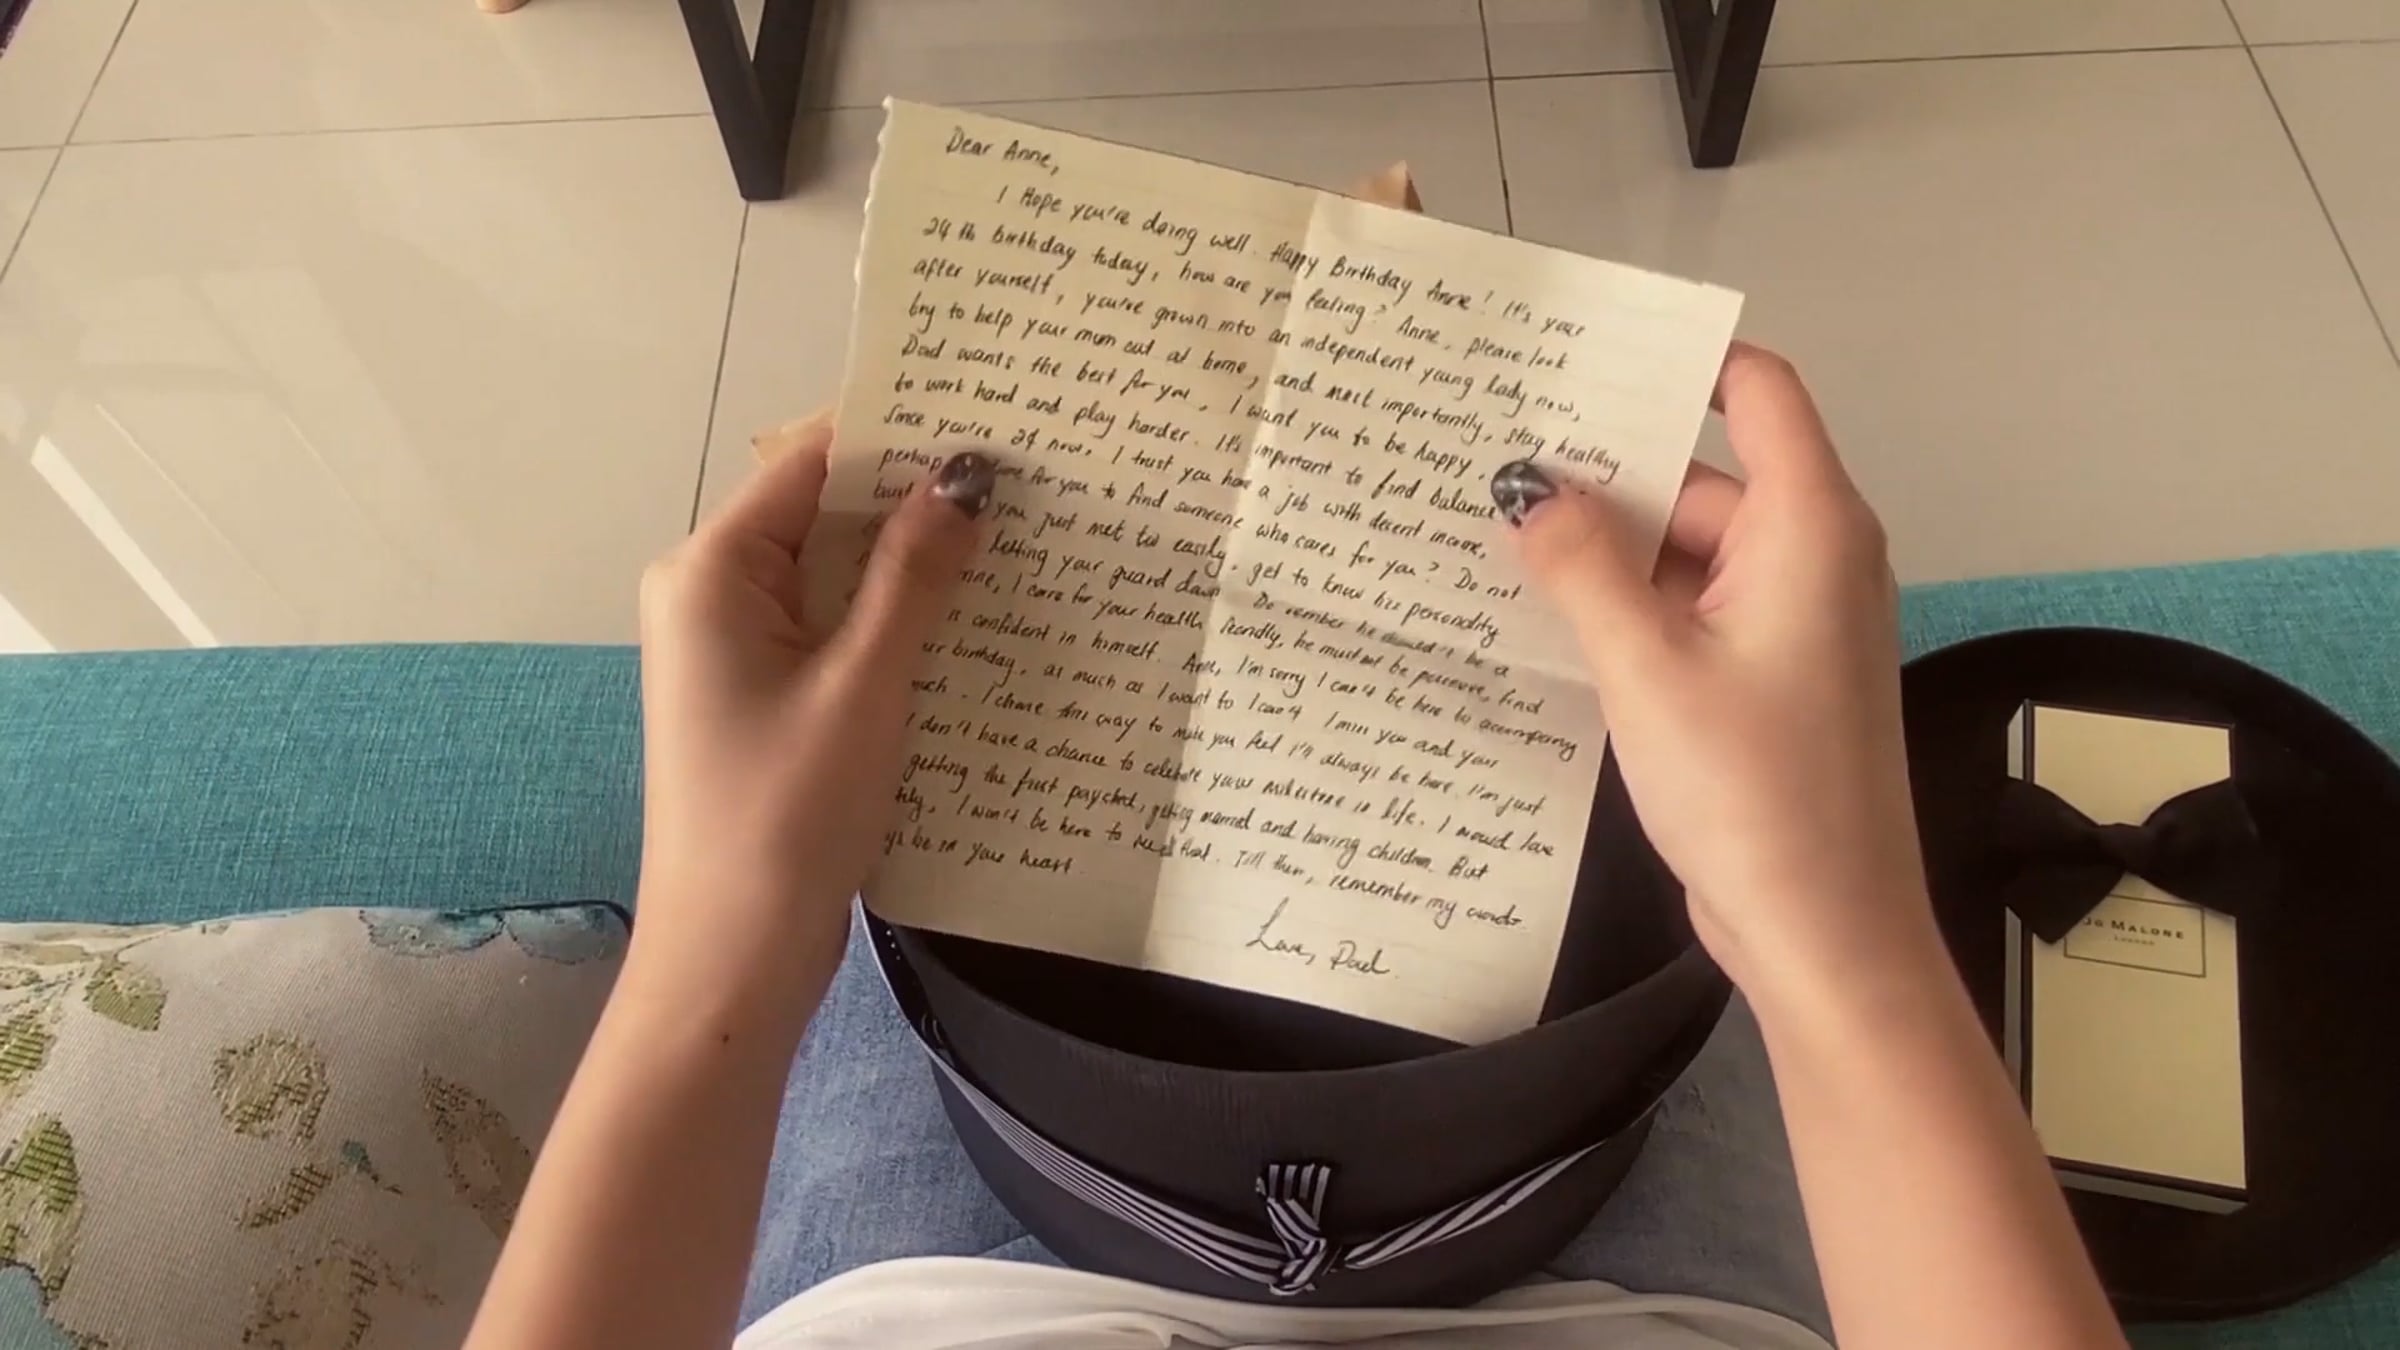 Dear Anne,
I Hope you're doing well. Happy Birthday Anne! It's your
24th birthday today, how are you feeling? Anne, please look
after yourself, you've grown into an independent young lady now,
try to help your mum out at home, and most importantly, stay healthy
Dad wants the best for you, I want you to be happy,
to work hard and play harder. It's important to find balance
Since you're 24 now, I trust you have a job with decent income,
perhap for you to find someone who cares for you? Do not
you just met too easily, get to know his personality
letting your guard down. Do remember he shouldn't be a
I care for your health he must not be find
is confident in himself. Anne, I'm sorry I can't be here to accompany
birthday, as much as I want to I can't I miss you and your
much. I chose this way to make you feel I'll always be here. I'm just
I don't have a chance to celebrate your milestone in life. I would love
getting the first paycheck, getting married and having children. But
I won't be here to see that. Till then, remember my words
be in your heart.
Love, Dad.
JO MALONE
LONDON